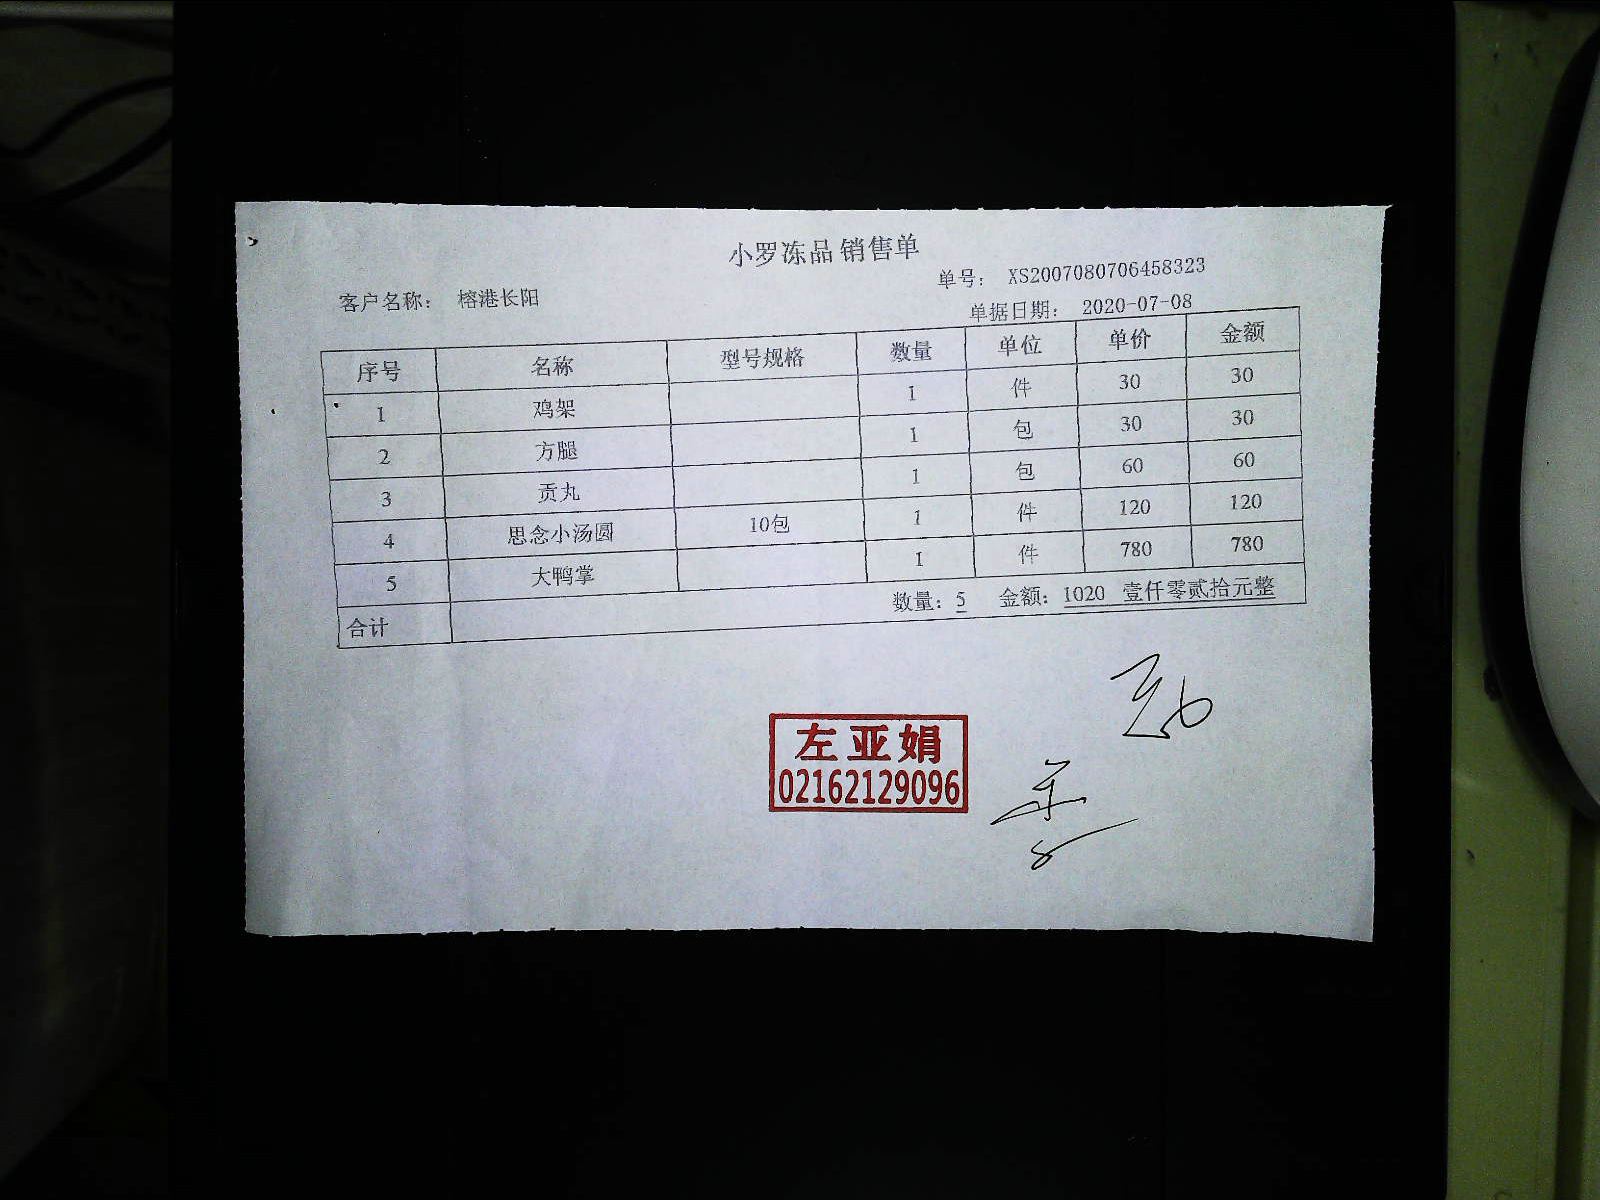 小罗冻品 销售单
单号: XS2007080706458323
客户名称: 榕港长阳
单据日期: 2020-07-08
序号 名称 型号规格 数量 单位 单价 金额
1 鸡架 1 件 30 30
2 方腿 1 包 30 30
3 贡丸 1 包 60 60
4 思念小汤圆 10包 1 件 120 120
5 大鸭掌 1 件 780 780
合计 数量: 5 金额: 1020 壹仟零贰拾元整
左亚娟
02162129096